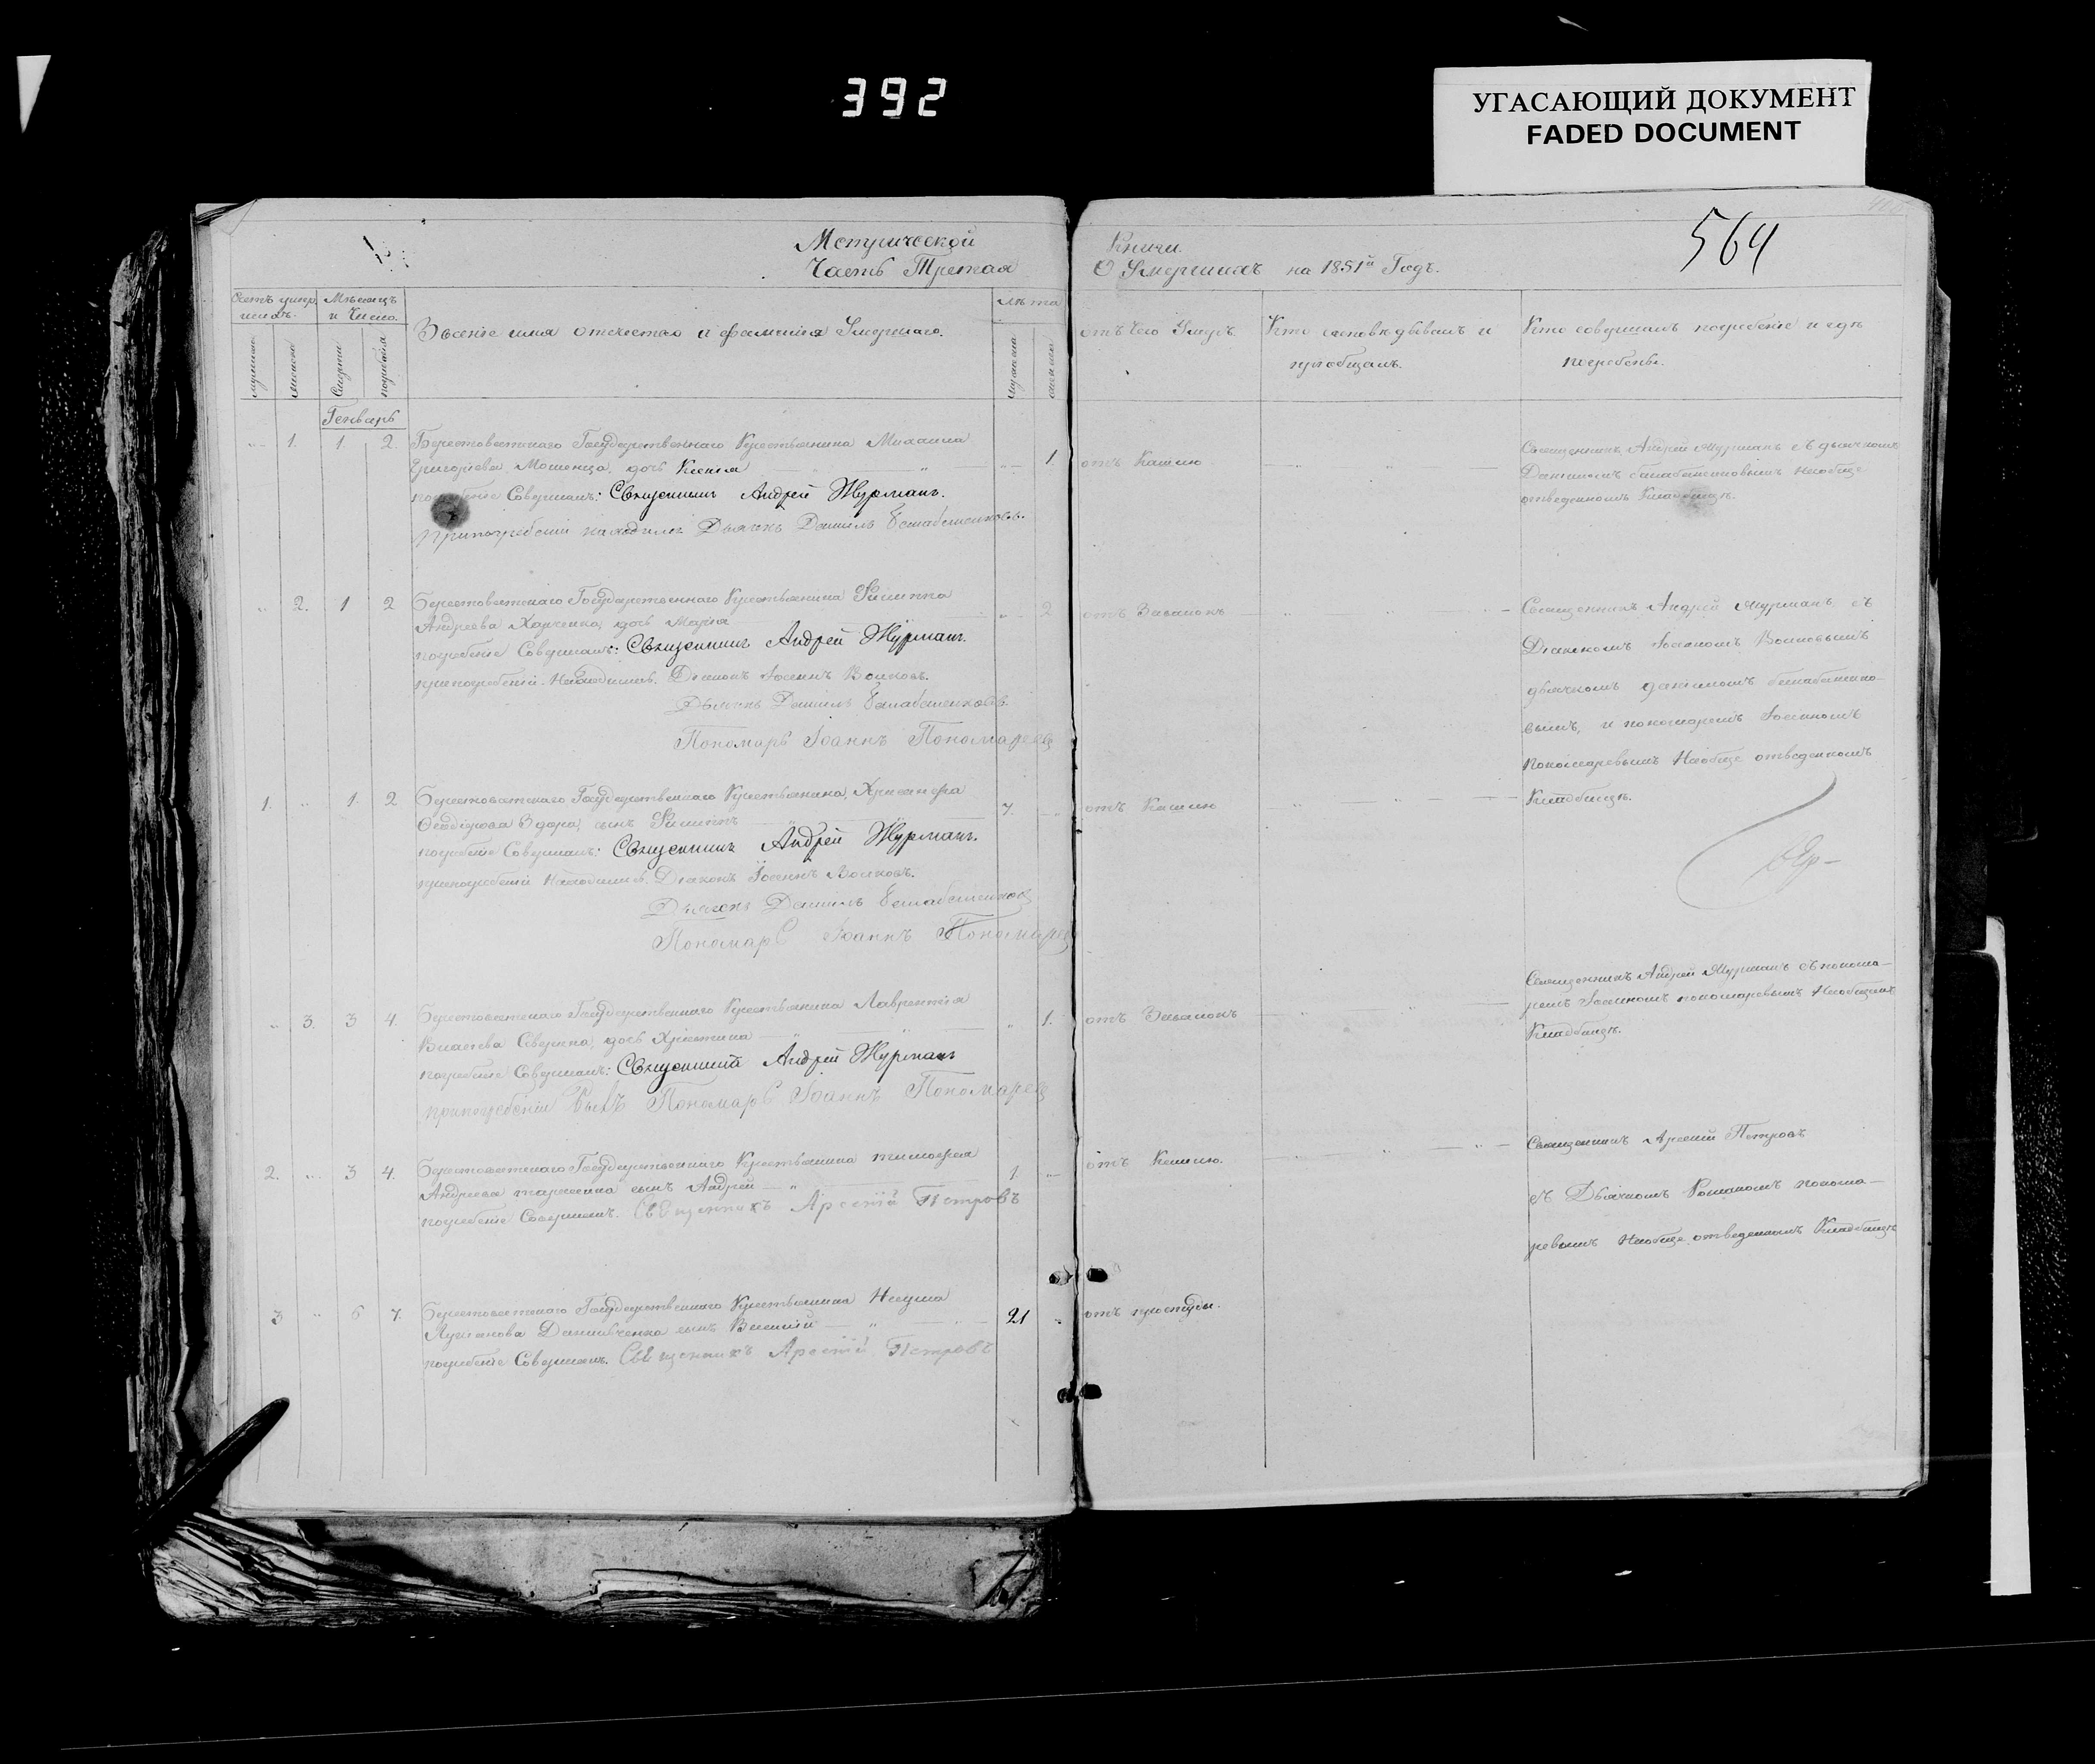 392
УГАСАЮЩИЙ ДОКУМЕНТ
FADED DOCUMENT
564
Метрической
Часть Третая
Книги.
О Умершихъ на 1851й Годъ.
Счетъ умер
шихъ.
Мѣсяцъ
и Число.
Званіе имя отчество и фамилія Умершаго.
Лѣта
отъ чего Умеръ
Кто исповѣдывалъ и
пріобщалъ.
Кто совершалъ погребеніе и гдѣ
погребены.
мужеска
женска
Смерти
погребенія
мужеска
женска
Генварь
1. 1. 2. Берестоватскаго Государственнаго Крестьянина Михаила 1. отъ Кашлю
Григорьева Мошенца, дочь Ксенія
погребеніе Совершалъ: Священникъ Андрей Журманъ.
При погребеніи находился Дьячкъ Даніилъ
Священникъ Андрей Журманъ съ дьячкомъ
Даніиломъ на общѣ
отведенномъ Кладбищѣ.
2. 1 2 Берестоватскаго Государственнаго Крестьянина Филиппа 2 отъ Завалокъ
Андреева Харченка, дочь Марія
погребеніе Совершалъ: Священникъ Андрей Журманъ.
при погребеніи Находились: Діаконъ Іоаннъ Волковъ.
Дьячкъ Даніилъ
Пономарь Іоаннъ Пономаревъ
Священникъ Андрей Журманъ, съ
Діакономъ Іоанномъ Волковымъ
дьячкомъ Даніиломъ
вымъ, и пономаремъ Іоанномъ
Пономаревымъ На общѣ отведенномъ
Кладбищѣ.
1. 1. 2 Берестоватскаго Государственнаго Крестьянина, 7. отъ Кашлю
сынъ Филиппъ
погребеніе Совершалъ: Священникъ Андрей Журманъ.
при погребеніи Находились: Діаконъ Іоаннъ Волковъ.
Дьячекъ Даніилъ
Пономарь Іоаннъ Пономаревъ
3. 3 4. Берестоватскаго Государственнаго Крестьянина Лаврентія 1. отъ Завалокъ
дочь Христина
погребеніе Совершалъ: Священникъ Андрей Журманъ
при погребеніи былъ Пономарь Іоаннъ Пономаревъ
Священникъ Андрей Журманъ съ понома-
ремъ Іоанномъ пономаревымъ На общемъ
Кладбищѣ.
2. 3 4. Берестоватскаго Государственнаго Крестьянина тимофея 1 отъ Кашлю.
Андреева сынъ Андрей
погребеніе Совершалъ. Священникъ Арсеній Петровъ
Священникъ Арсеній Петровъ
съ Дьячкомъ Романомъ понома-
ревымъ На общѣ отведенномъ Кладбищѣ
3 6 7. Берестоватскаго Государственнаго Крестьянина Наума 21 отъ простуды.
сынъ Василій
погребеніе Совершалъ. Священникъ Арсеній Петровъ